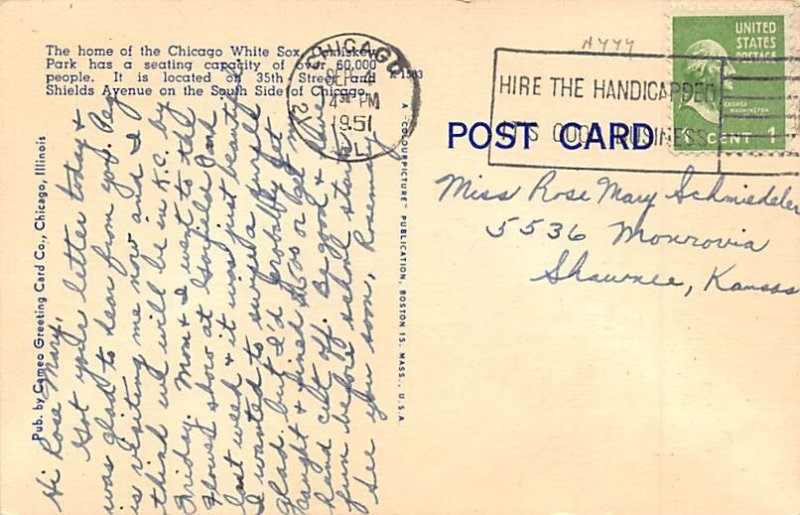 The home of the Chicago White Sox, Comiskey
Park has a seating capacity of over 60,000
people. It is located on 35th Street and
Shields Avenue on the South Side of Chicago.
K 1583
Pub. by Cameo Greeting Card Co., Chicago, Illinois
Hi Rose Mary,
Got your letter today &
was glad to hear from you. Peg
is visiting me now and I
think we will be in K.C. by
Friday. Mom & I went to the
flower show at Garfield Park
last week & it was just beautiful
I wanted to swipe a purple
glad. but I'd probably get
caught & fined $5.00 or get my
hand cut off. Be good & have
fun before school starts.
See you soon, Rosemary
A "COLOURPICTURE" PUBLICATION, BOSTON 15, MASS., U.S.A.
CHICAGO
SEP 4
4 30 PM
1951
ILL.
HIRE THE HANDICAPPED
IT'S GOOD BUSINESS
POST CARD
UNITED
STATES
POSTAGE
GEORGE
WASHINGTON
CENT 1
Miss Rose Mary Schmiedeler
5536 Monrovia
Shawnee, Kansas